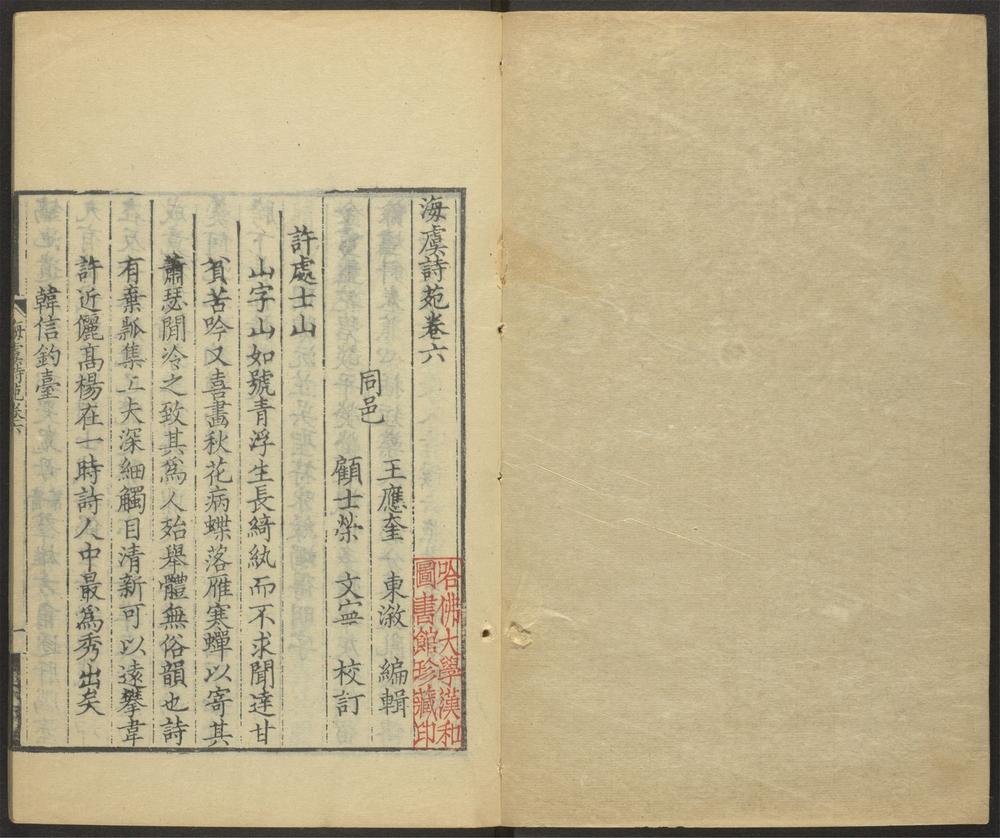 海虞詩苑卷六
同邑
王應奎 東漵 編輯
顧士榮 文寧 校訂
許處士山
山字山如號青浮生長綺紈而不求聞達甘
貧苦吟又喜畵秋花病蝶落雁寒蟬以寄其
蕭瑟閒冷之致其爲人殆舉體無俗韻也詩
有棄瓢集工夫深細觸目清新可以遠攀韋
許近儷高楊在一時詩人中最爲秀出矣
韓信釣臺
海虞詩苑卷六
一
哈佛大學漢和
圖書館珍藏印